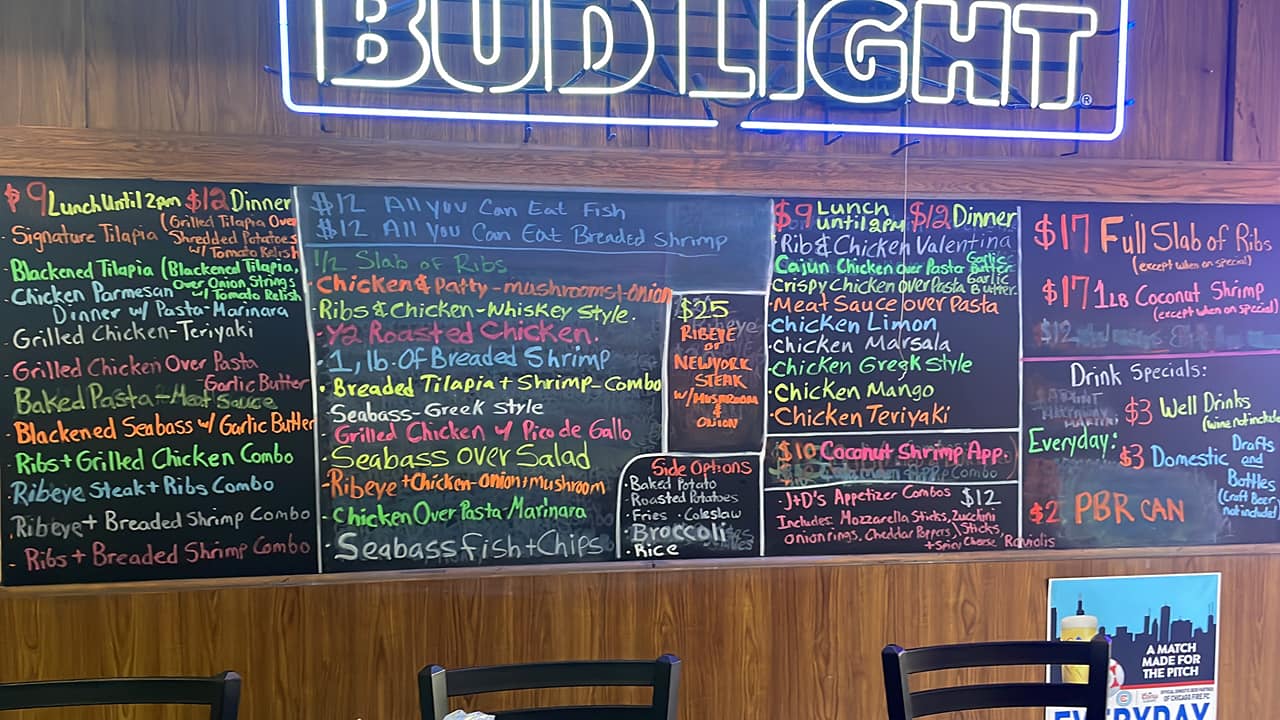 BUD LIGHT
$9 Lunch Until 2pm $12 Dinner
· Signature Tilapia (Grilled Tilapia Over
Shredded Potatoes
w/ Tomato Relish
· Blackened Tilapia (Blackened Tilapia,
Over Onion Strings
w/ Tomato Relish
· Chicken Parmesan
Dinner w/ Pasta-Marinara
· Grilled Chicken-Teriyaki
· Grilled Chicken Over Pasta
-Garlic Butter
Baked Pasta-Meat Sauce
· Blackened Seabass w/ Garlic Butter
· Ribs+Grilled Chicken Combo
· Ribeye Steak+Ribs Combo
· Ribeye+Breaded Shrimp Combo
· Ribs+Breaded Shrimp Combo
$12 All you Can Eat Fish
$12 All you Can Eat Breaded Shrimp
1/2 Slab of Ribs
· Chicken & Patty-mushrooms+onion
· Ribs & Chicken-Whiskey Style.
· 1/2 Roasted Chicken.
· 1, lb. Of Breaded Shrimp
· Breaded Tilapia + Shrimp-Combo
Seabass-Greek Style
· Grilled Chicken w/ Pico de Gallo
· Seabass over Salad
-Ribeye+Chicken-onion+mushroom
· Chicken Over Pasta Marinara
· Seabass fish+Chips
$25
Ribeye
or
Newyork
Steak
w/mushroom
&
onion
Side Options
· Baked Potato
· Roasted Potatoes
· Fries · Coleslaw
· Broccoli
· Rice
$9 Lunch until 2pm $12 Dinner
· Rib & Chicken Valentina
Cajun Chicken over Pasta Garlic Butter
Crispy Chicken over Pasta Garlic Butter.
· Meat Sauce over Pasta
· Chicken Limon
· Chicken Marsala
· Chicken Greek Style
· Chicken Mango
· Chicken Teriyaki
$10 Coconut Shrimp App.
· J+D's Appetizer Combos $12
Includes: Mozzarella Sticks, Zucchini Sticks,
Onion rings, Cheddar Poppers,
+Spicy Cheese Raviolis
$17 Full Slab of Ribs
(except when on special)
$17 1LB Coconut Shrimp
(except when on special)
$12
Drink Specials:
Everyday: $3 Well Drinks
(wine not included
$3 Domestic Drafts
and
Bottles
(Craft Beer
not included)
$2 PBR CAN
A MATCH
MADE FOR
THE PITCH
OFFICIAL DOMESTIC BEER PARTNER
OF CHICAGO FIRE FC